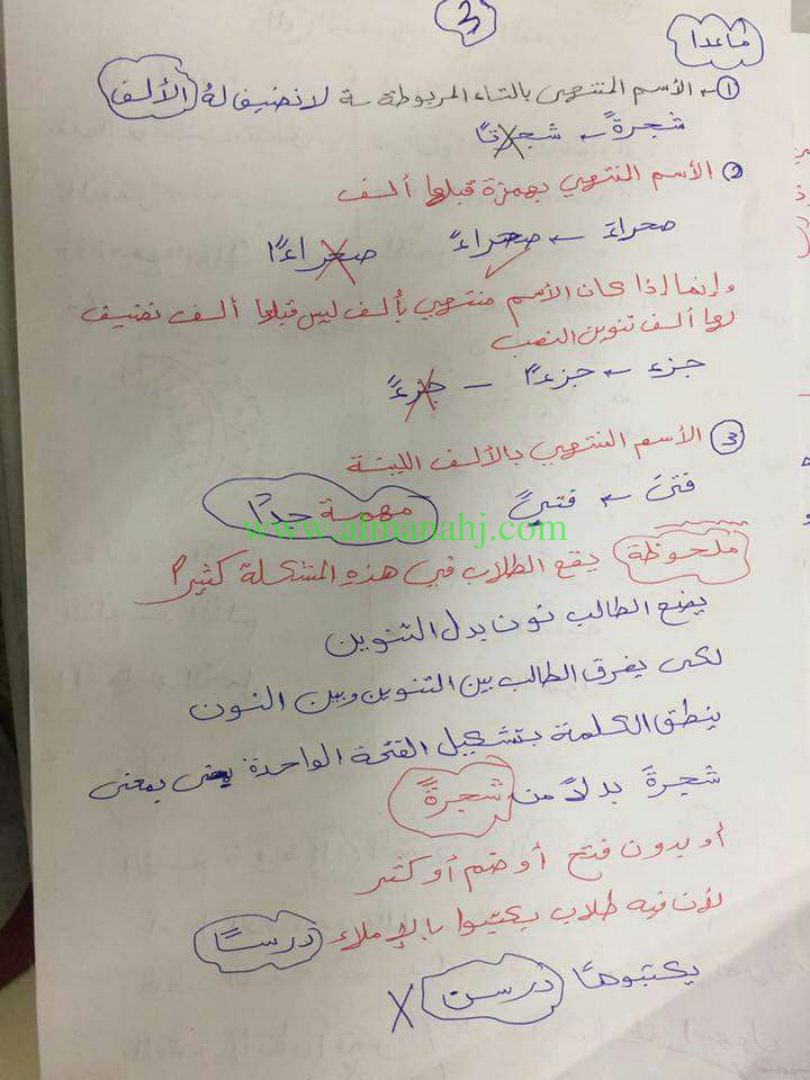 3
ماعدا
① - الأسم المنتهي بالتاء المربوطة ـة لا نضيف له الألف
شجرةً ← شجرتًا
② الأسم المنتهي بهمزة قبلها ألف
صحراءَ ← صحراءً صحراءًا
وإنما إذا كان الأسم منتهي بألف ليس قبلها ألف نضيف
لها ألف تنوين النصب
جزء ← جزءًا - جزءً
③ الأسم المنتهي بالألف اللينة
فتىَ ← فتىً مهمة جدًا
www.almanahj.com
ملحوظة يقع الطلاب في هذه المشكلة كثيرًا
يضع الطالب نون بدل التنوين
لكى يفرق الطالب بين التنوين وبين النون
ينطق الكلمة بتشكيل الفتحة الواحدة يعنى بمعنى
شجرةَ بدلاً من شجرةً
أو بدون فتح أو ضم أو كثر
لأن فيه طلاب يكتبوا بالإملاء درسًا
يكتبوها درسن X